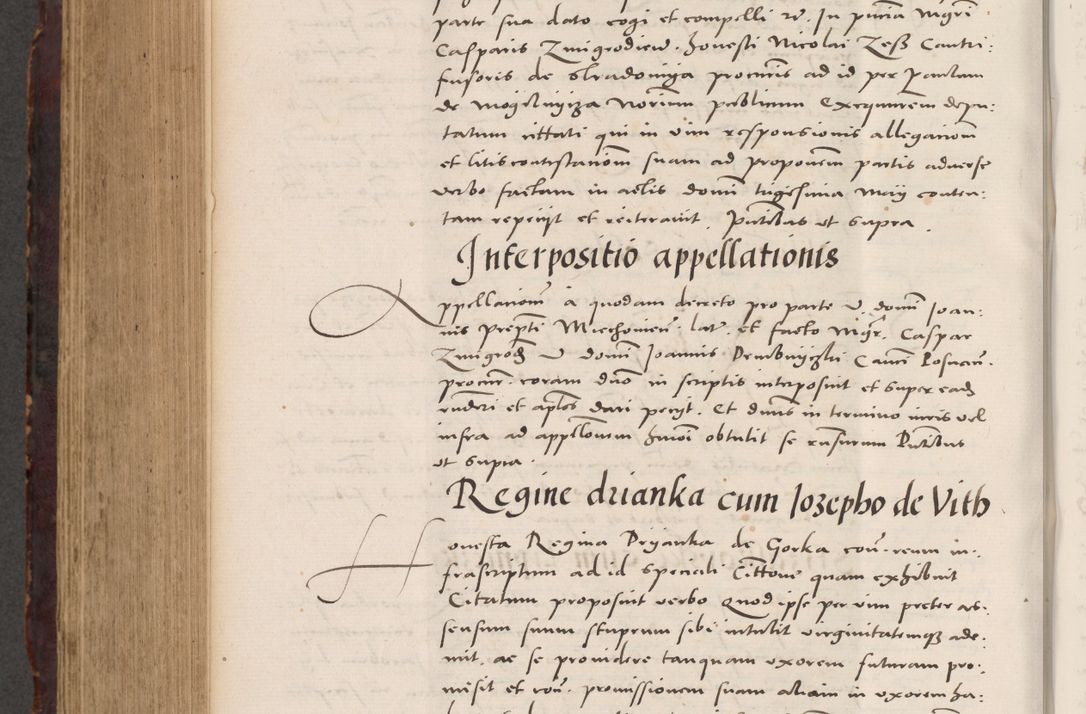 parte sua dato cogi et compelli etc. In pñcia Mgri
Casparis Zmigrodien. Honesti Nicolai Zesz Cantri-
fusoris de Stradomija procuris ad id per Paulum
de Mogilnijcza Norium publicum Exequutem depu-
tatum cittati qui in vim responsionis allegationem
et litis contestationem suam ad proponem partis adverse
verbo factam in actis domi trigesima Maij conten-
tam repetijt et reiteravit. Pntibus ut supra.
Interpositio appellationis
Appellationem a quodam decreto pro parte V. domi Ioan-
nis Prepti Miechoviem. lat. et facto Mgr. Caspar
Zmigrod V domi Joannis Drubnijczki Canci Posnan.
procur. coram dno in scriptis interposuit et super eadem
rnderi et aplos dari petijt. Et dnus in termino iuris vel
infra ad appllonem hmoi obtulit se rnsurum Pntibus
ut supra.
Regine drianka cum Jozepho de Vith
Honesta Regina Drijanka de Gorka con. reum in-
frascriptum ad id speciali Cittone quam exhibuit
Citatum proposuit verbo Quod ipse per vim preter as-
sensum suum stuprum sibi intulit virginitatemque ade-
mit, ac se providere tanquam uxorem futuram pro-
misit et con. promissionem suam aliam in uxorem ha-